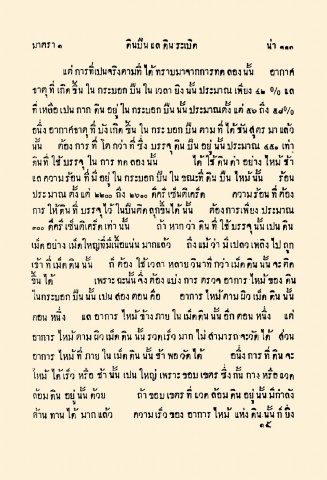 มาตรา ๑ ดินปืน แล ดิน ระเบิด น่า ๑๑๓
แต่ การที่เปนจริงตามที่ ได้ ทราบมาจากการทด ลอง นั้น อากาศ
ธาตุ ที่ เกิด ขึ้น ใน กระบอก ปืน ใน เวลา ยิง นั้น ประมาณ เพียง ๔๒ % แล
ที่ เหลือ เปน กาก ดิน อยู่ ใน กระบอก ปืน นั้น ประมาณตั้ง แต่ ๕๖ ถึง ๕๘%
อนึ่ง อากาศธาตุ ที่ บัง เกิด ขึ้น ใน กระ บอก ปืน ตาม ที่ ได้ ชันสูตร มา แล้ว
นั้น ต้อง การ ที่ โต กว่า ที่ ซึ่ง บรรจุ ดิน ปืน อยู่ นั้น ประมาณ ๔๔๐ เท่า
ดิน ที่ ใช้ บรรจุ ใน การ ทด ลอง นั้น ได้ ใช้ ดิน ดำ อย่าง ไหม้ ช้า
แล ความ ร้อน ที่ มี อยู่ ใน กระบอก ปืน ใน ขณะที่ ดิน ปืน ไหม้ นั้น ร้อน
ประ มาณ ตั้ง แต่ ๒๒๐๐ ถึง ๒๖๓๐ ดีกรี เซ็นติเคร็ด ความ ร้อน ที่ ต้อง
การ ให้ ดิน ที่ บรรจุ ไว้ ในปืนติด ลุกขึ้นได้ นั้น ต้อง การเพียง ประมาณ
๓๐๐ ดีกรี เซ็นติเคร็ด เท่า นั้น ถ้า หาก ว่า ดิน ที่ ใช้ บรรจุ นั้น เปน ดิน
เม็ด อย่าง เม็ด ใหญ่ที่มีเนื้อแน่น มากแล้ว ถึง แม้ว่า มี เปลว เพลิง ไป ถูก
เข้า ที่ เม็ด ดิน นั้น ก็ ต้อง ใช้ เวลา หลาย วินาที กว่า เม็ด ดิน นั้น จะ ติด
ขึ้น ได้ เพราะ ฉะนั้น จึ่ง ต้อง แบ่ง การ ตรวจ อาการ ไหม้ ของ ดิน
ในกระบอก ปืน นั้น เปน สอง ตอน คือ อาการ ไหม้ ตาม ผิว เม็ด ดิน นั้น
ตอน หนึ่ง แล อาการ ไหม้ ข้าง ภาย ใน เม็ด ดิน นั้น อีก ตอน หนึ่ง แต่
อาการ ไหม้ ตาม ผิว เม็ด ดิน นั้น รวดเร็ว มาก ไม่ สามารถ จะวัด ได้ ส่วน
อาการ ไหม้ที่ ภาย ใน เม็ด ดิน นั้น ช้า พอ วัด ได้ อนึ่ง การ ที่ ดิน จะ
ไหม้ ได้ เร็ว หรือ ช้า นั้น เปน ใหญ่ เพราะ ขอบ เขตร ซึ่ง กั้น กาง หรือ แวด
ล้อม ดิน อยู่ นั้น ด้วย ถ้า ขอบ เขตร ที่ แวด ล้อม ดิน อยู่ นั้น มีกำลัง
ต้าน ทาน ได้ มาก แล้ว ความ เร็ว ของ อาการ ไหม้ แห่ง ดิน นั้น ก็ ยิ่ง
๑๕